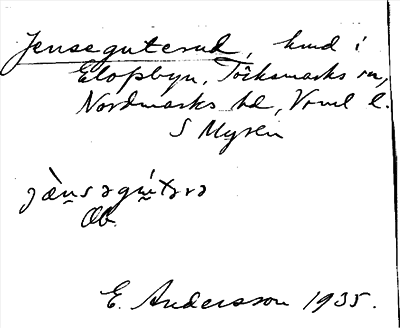 Jenseguterud, hmd i
Elofsbyn, Töcksmarks sn,
Nordmarks hd, Vrml l.
S Myren
Ob.
E. Andersson 1935.